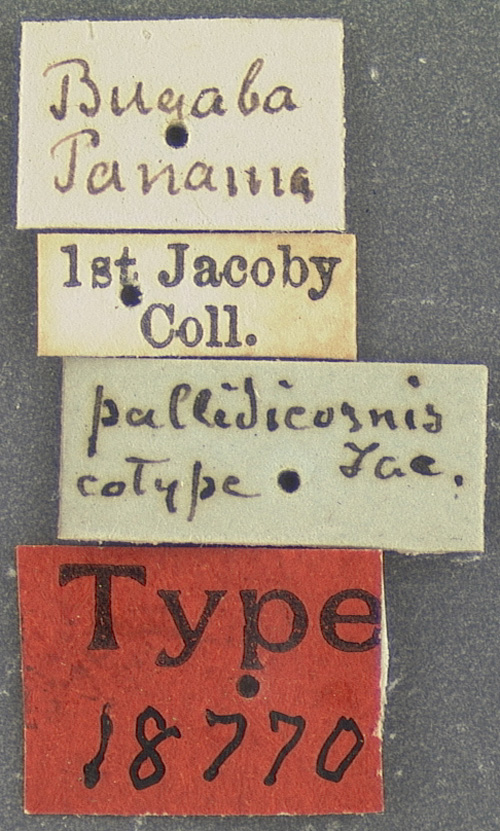 Bugaba
Panama
1st Jacoby
Coll.
pallidicornis
cotype Jac.
Type
18770